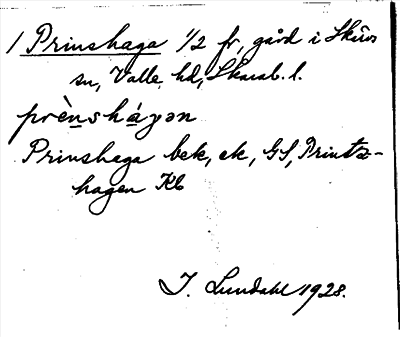 1 Prinshaga 1/2 fr, gård i Skärvs
sn, Valle hd, Skarab. l.
prènsháγən
Prinshaga bek, ek, GS, Prints-
hagen Kb
I. Lundahl 1928.